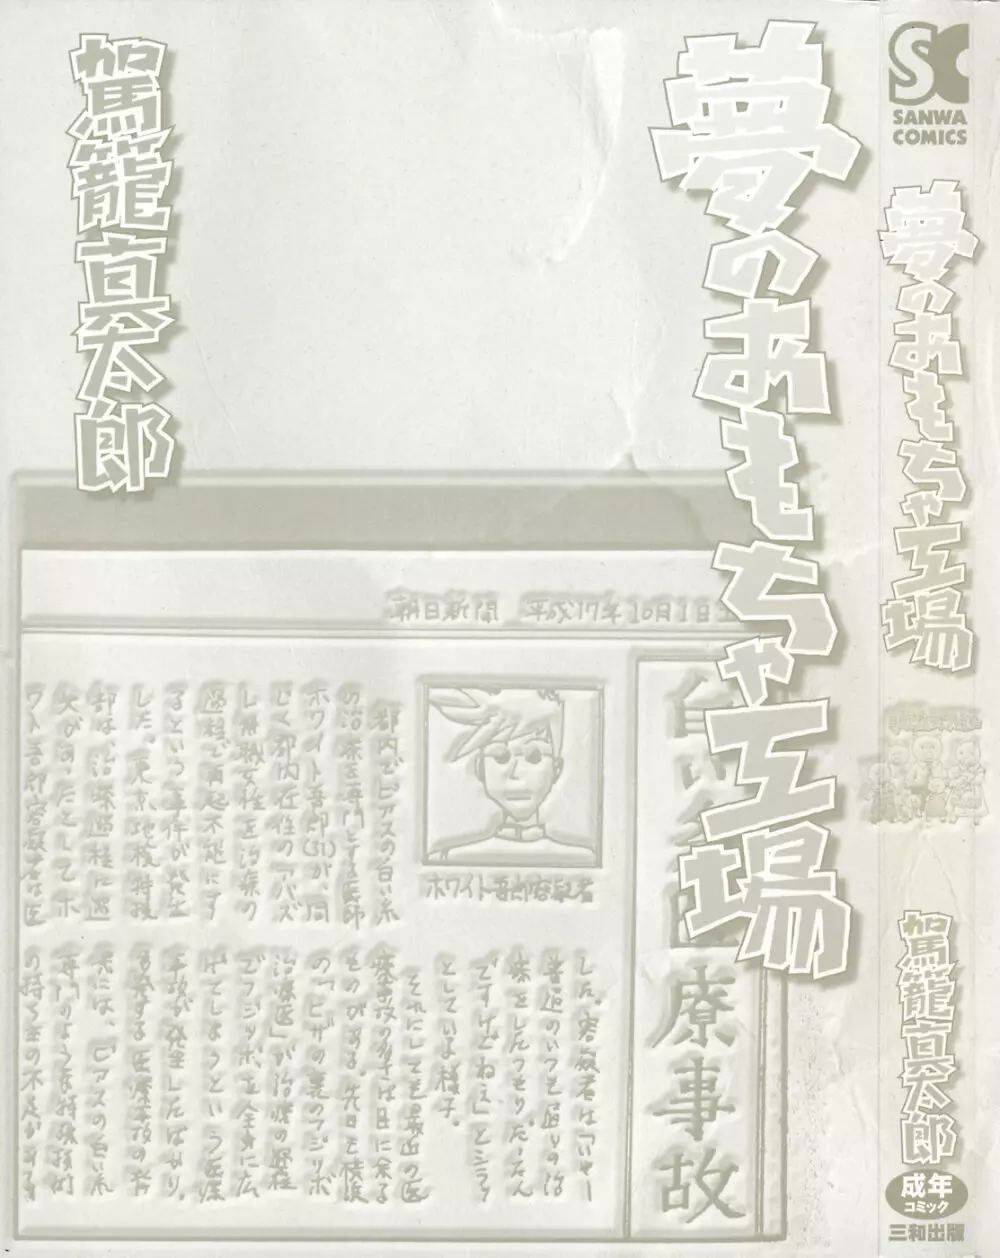 夢のおもちゃ工場
駕籠真太郎
SC
SANWA
COMICS
夢のおもちゃ工場
駕籠真太郎
成年
コミック
三和出版
朝日新聞 平成17年10月1日土
医療事故
ホワイト吾郎容疑者
都内でピアスの白い糸
の治療を専門とする医師
ホワイト吾郎(31)が、同
じく都内在住の
し無職女性を治療の
過程で再起不能にす
るという事件が発生
した。東京地検特捜
部は、治療過程に過
失があったとしてホ
ワイト吾郎容疑者は医
した。容疑者は「いやー
普通のいつも通りの治
療をしたつもりだったん
ですけどねぇ」とシラ
としている様子。
それにしても最近の医
療事故の多さは日に余る
ものがある。先日も横浜
の「ヒザの裏のフジツボ
治療医」が治療の過程
でフジツボを全身に広
げてしまうという医療
事故が発生したばかり。
多発する医療事故の背
景には、ピアスの白い糸
専門のような特殊技術
の持ち主の不足がある